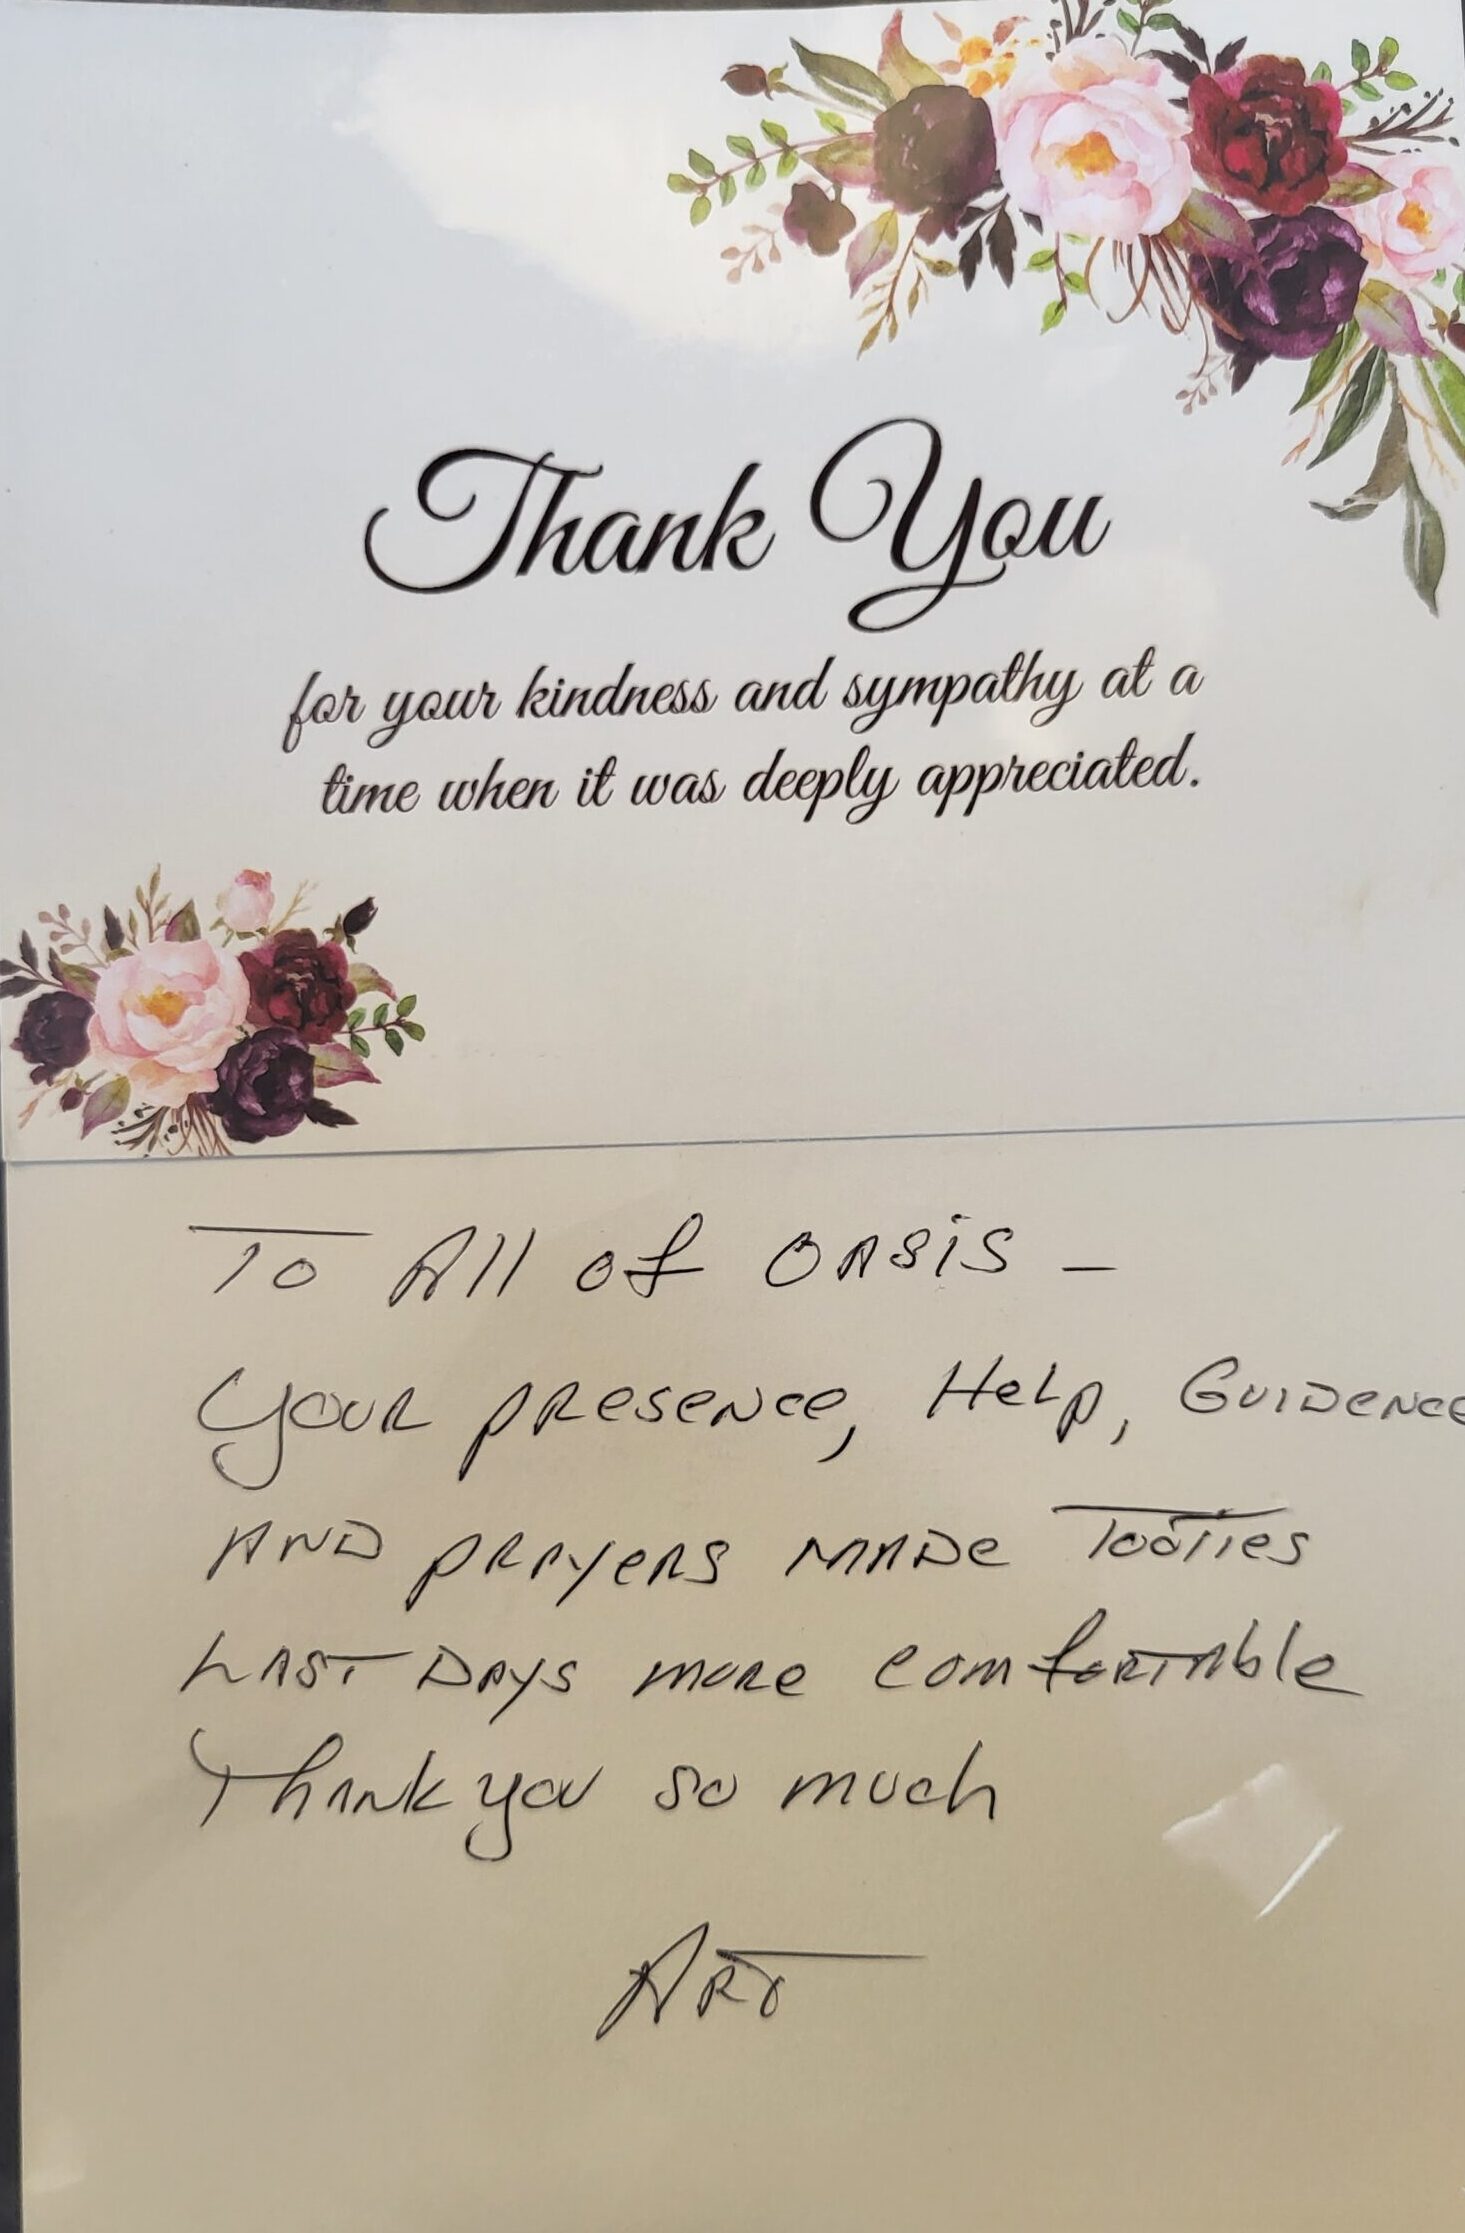 Thank You
for your kindness and sympathy at a
time when it was deeply appreciated.
To All of OASiS -
YOUR PReseNce, HeLp, GUIDeNce
AND PRAYeRS MADe TooTies
LAST DAYS more comfortAble
ThANk you so much
ART